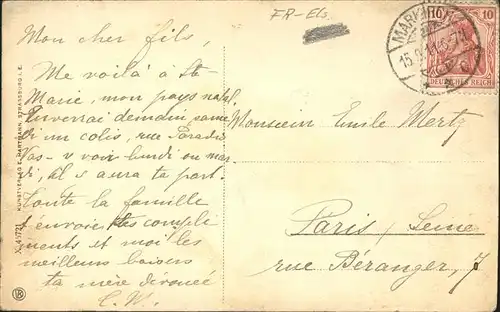 FR-Els
Mon cher fils,
Me voilà à Ste
Marie, mon pays natal
enverrai demain same
di un colis, rue Paradis
Vas-y voir lundi ou mar
di, il s aura ta port.
Toute la famille
t'envoie les compli
ments et moi les
meilleurs baisers
ta mère dévouée
C. W.
MARKIRCH
15.9.11
10 10
DEUTSCHES REICH
Monsieur Emile Mertz
Paris, Seine
rue Béranger, 7
KUNSTVERLAG E. HARTMANN, STRASSBURG I. E.